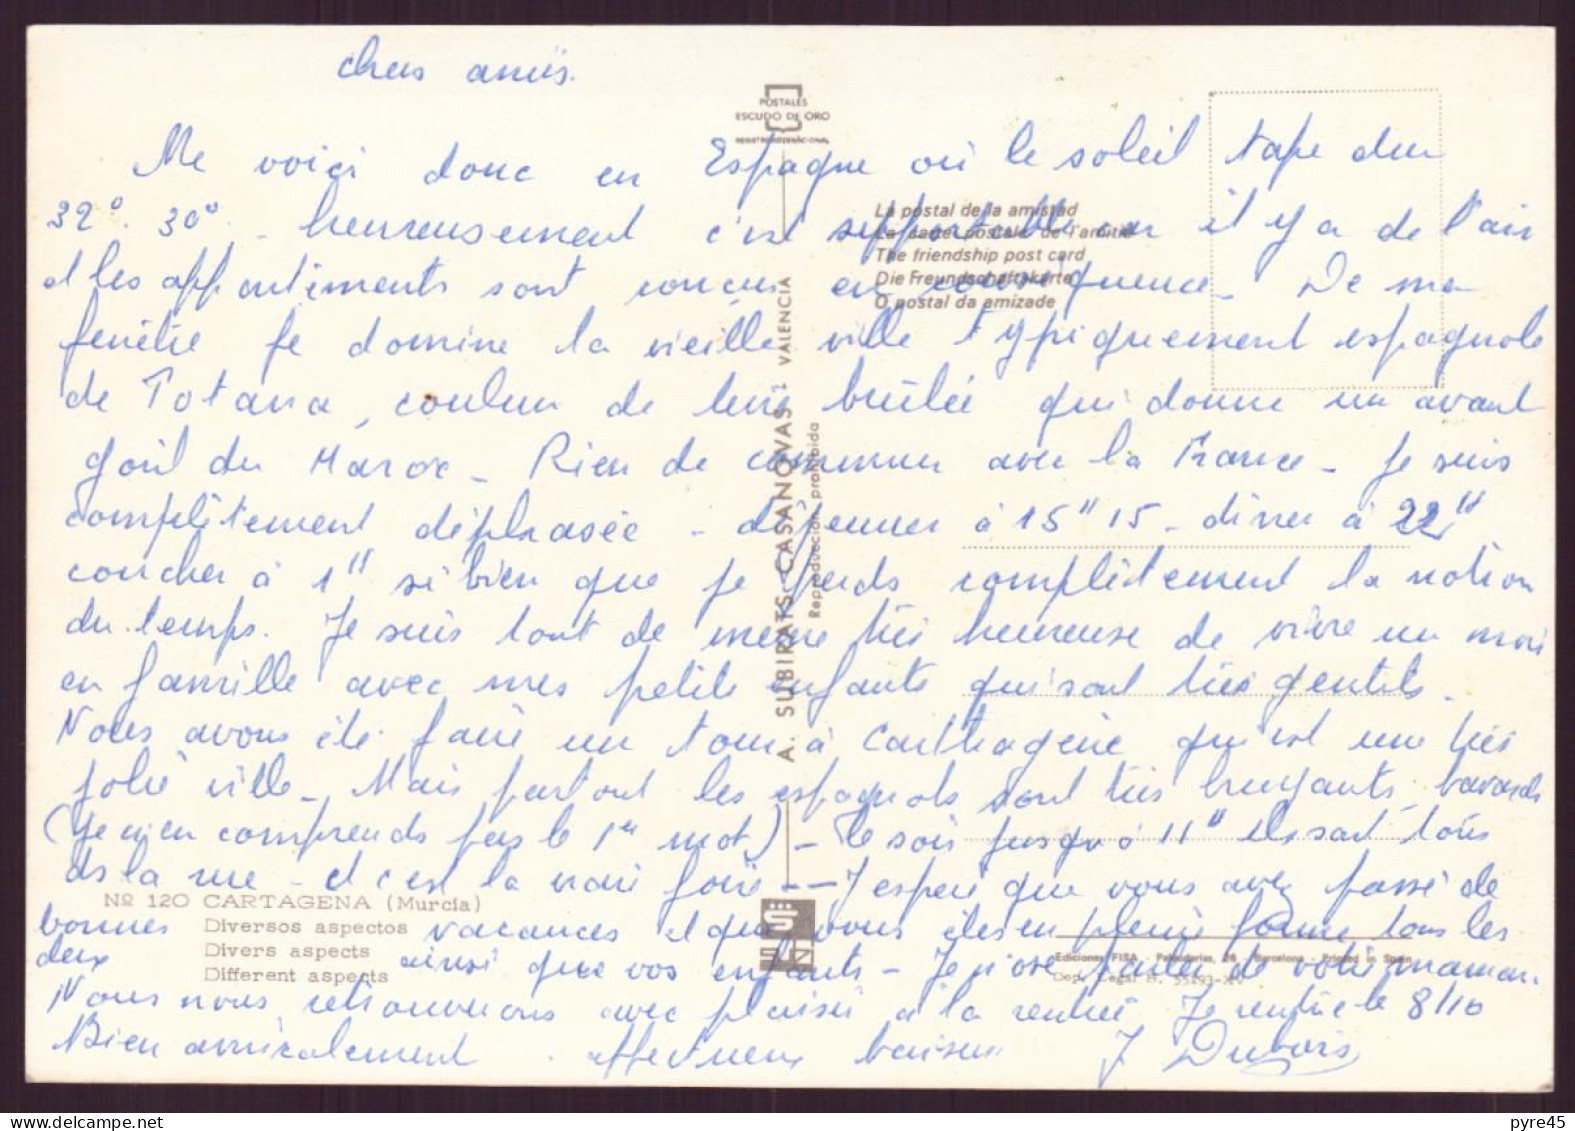 chers amis.
POSTALES
ESCUDO DE ORO
Me voici donc en Espagne où le soleil tape dur
32° . 30° - heureusement c'est supportable car il y a de l'air
La postal de la amistad
La carte postale de l'amitié
The friendship post card
Die Freundschaftskarte
O postal da amizade
et les appartements sont conçus en conséquence - De ma
fenêtre je domine la vieille ville typiquement espagnole
de Totana, couleur de terre brûlée qui donne un avant
goût du Maroc - Rien de commun avec la France - Je suis
complètement déphasée - déjeuner à 15H 15 - dîner à 22H
coucher à 1H si bien que je perds complètement la notion
du temps. Je suis tout de même très heureuse de vivre un mois
en famille avec mes petits enfants qui sont très gentils -
Nous avons été faire un tour à Carthagène qui est une très
jolie ville - Mais partout les espagnols sont très bruyants, bavards
(je n'en comprends pas le 1er mot) - le soir jusqu'à 11H ils sont tous
ds la rue - et c'est la vraie foire -- J'espère que vous avez passé de
bonnes vacances et que vous êtes en pleine forme tous les
deux ainsi que vos enfants - Je n'ose parler de votre maman.
Nous nous retrouverons avec plaisir à la rentrée. Je rentre le 8/10
Bien amicalement . affectueux baisers J Dubois
A. SUBIRATS CASANOVAS - VALENCIA
Reproducción prohibida
Nº 120 CARTAGENA (Murcia)
Diversos aspectos
Divers aspects
Different aspects
Ediciones FISA - Palaudarias, 26 - Barcelona - Printed in Spain
Dep. Legal B. 55193-XV
pyre45
delcampe.net